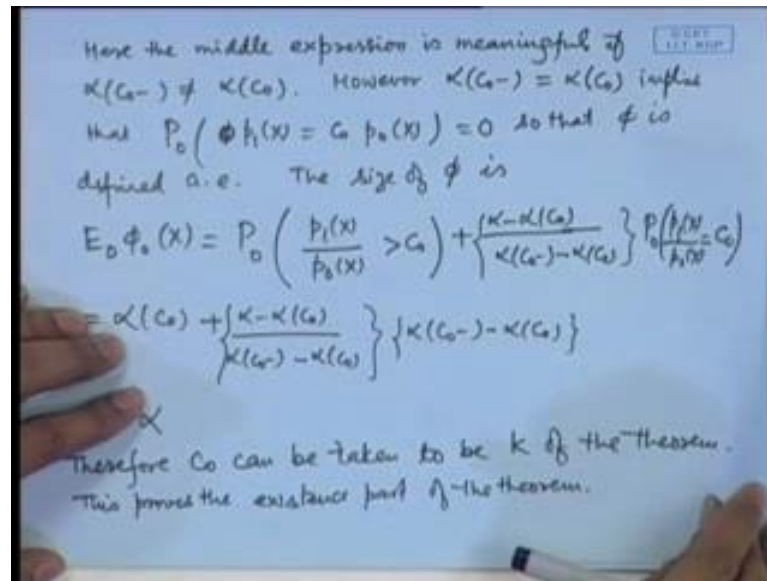 Here the middle expression is meaningful if
α(C₀-) ≠ α(C₀). However α(C₀-) = α(C₀) implies
that P₀( p₁(x) = C₀ p₀(x) ) = 0 so that φ is
defined a.e. The size of φ is
E₀ φ₀(X) = P₀( p₁(X)/p₀(X) > C₀ ) + { α-α(C₀) / α(C₀-)-α(C₀) } P₀( p₁(X)/p₀(X) = C₀ )
= α(C₀) + { α-α(C₀) / α(C₀-)-α(C₀) } { α(C₀-)-α(C₀) }
α
Therefore C₀ can be taken to be k of the theorem.
This proves the existence part of the theorem.